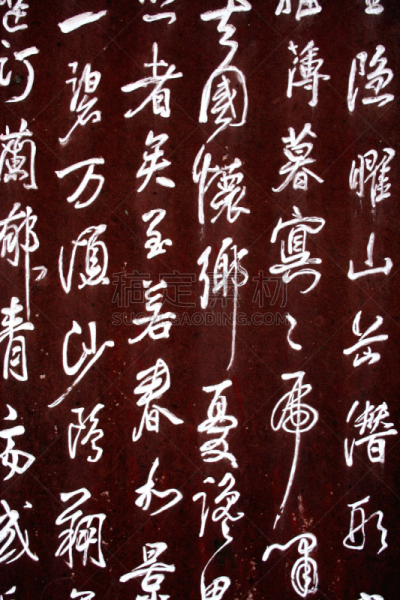 隱曜山岳潛形
薄暮冥々虎嘯
去國懷鄉憂讒畏
者矣至若春和景
一碧萬頃沙鷗翔
汀蘭郁々青々而或
稿定素材
SUCAI.GAODING.COM